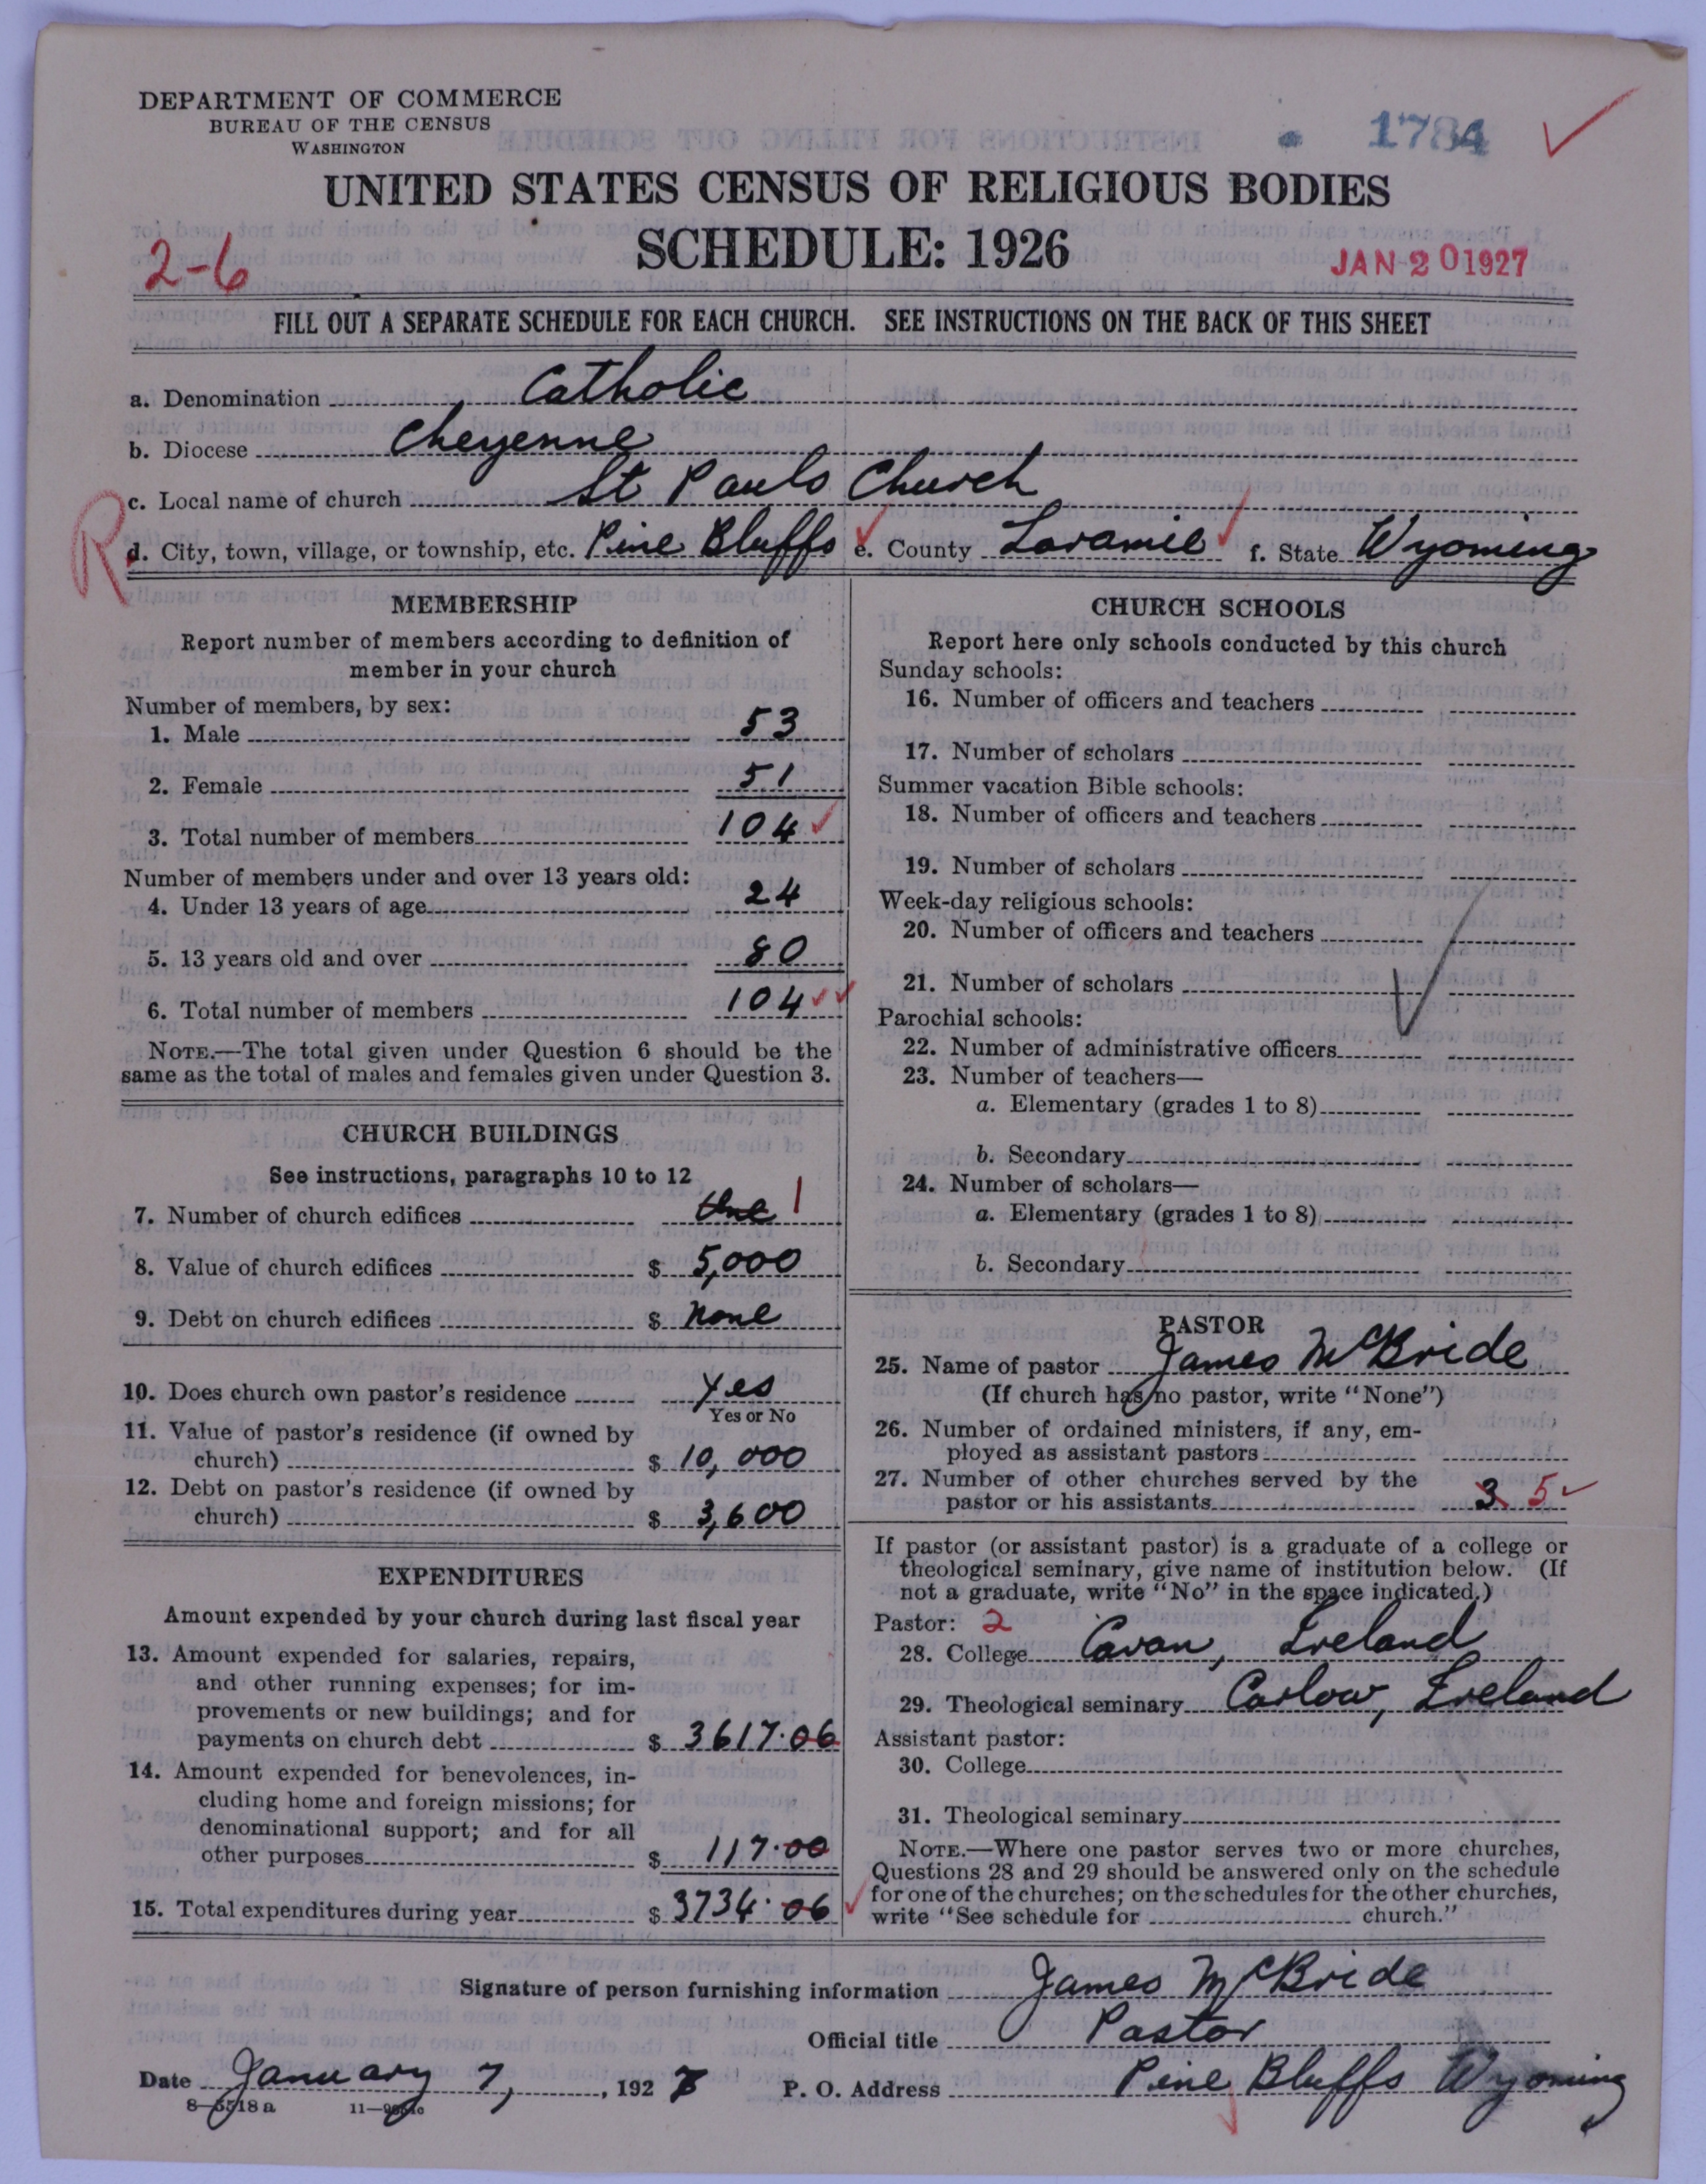 DEPARTMENT OF COMMERCE
BUREAU OF THE CENSUS
WASHINGTON
1784
UNITED STATES CENSUS OF RELIGIOUS BODIES
SCHEDULE: 1926
2-6
JAN 20 1927
FILL OUT A SEPARATE SCHEDULE FOR EACH CHURCH. SEE INSTRUCTIONS ON THE BACK OF THIS SHEET
a. Denomination Catholic
b. Diocese Cheyenne
c. Local name of church St Pauls Church
R
d. City, town, village, or township, etc. Pine Bluffs e. County Laramie f. State Wyoming
MEMBERSHIP
Report number of members according to definition of
member in your church
Number of members, by sex:
1. Male 53
2. Female 51
3. Total number of members 104
Number of members under and over 13 years old:
4. Under 13 years of age 24
5. 13 years old and over 80
6. Total number of members 104
NOTE.—The total given under Question 6 should be the
same as the total of males and females given under Question 3.
CHURCH BUILDINGS
See instructions, paragraphs 10 to 12
7. Number of church edifices One 1
8. Value of church edifices $ 5,000
9. Debt on church edifices $ none
10. Does church own pastor's residence Yes
Yes or No
11. Value of pastor's residence (if owned by
church) $ 10,000
12. Debt on pastor's residence (if owned by
church) $ 3,600
EXPENDITURES
Amount expended by your church during last fiscal year
13. Amount expended for salaries, repairs,
and other running expenses; for im-
provements or new buildings; and for
payments on church debt $ 3617.06
14. Amount expended for benevolences, in-
cluding home and foreign missions; for
denominational support; and for all
other purposes $ 117.00
15. Total expenditures during year $ 3734.06
CHURCH SCHOOLS
Report here only schools conducted by this church
Sunday schools:
16. Number of officers and teachers
17. Number of scholars
Summer vacation Bible schools:
18. Number of officers and teachers
19. Number of scholars
Week-day religious schools:
20. Number of officers and teachers
21. Number of scholars
Parochial schools:
22. Number of administrative officers
23. Number of teachers—
a. Elementary (grades 1 to 8)
b. Secondary
24. Number of scholars—
a. Elementary (grades 1 to 8)
b. Secondary
PASTOR
25. Name of pastor James McBride
(If church has no pastor, write "None")
26. Number of ordained ministers, if any, em-
ployed as assistant pastors
27. Number of other churches served by the
pastor or his assistants 3 5
If pastor (or assistant pastor) is a graduate of a college or
theological seminary, give name of institution below. (If
not a graduate, write "No" in the space indicated.)
Pastor: 2
28. College Cavan, Ireland
29. Theological seminary Carlow, Ireland
Assistant pastor:
30. College
31. Theological seminary
NOTE.—Where one pastor serves two or more churches,
Questions 28 and 29 should be answered only on the schedule
for one of the churches; on the schedules for the other churches,
write "See schedule for church."
Signature of person furnishing information James McBride
Official title Pastor
Date January 7, 1927 P. O. Address Pine Bluffs Wyoming
8—5518a